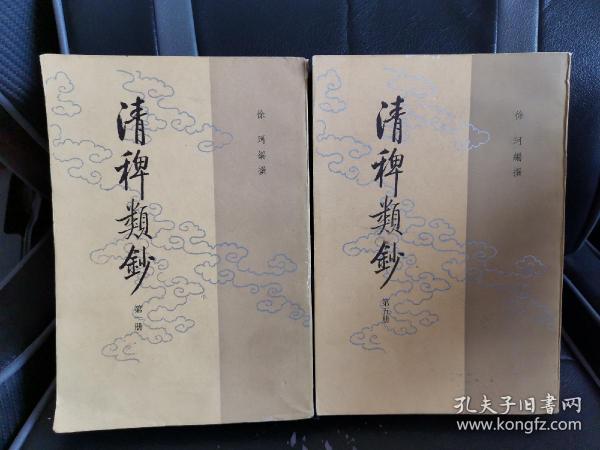 清稗類鈔
第一册
徐珂編撰
清稗類鈔
第五册
徐珂編撰
孔夫子旧书网
www.kongfz.com